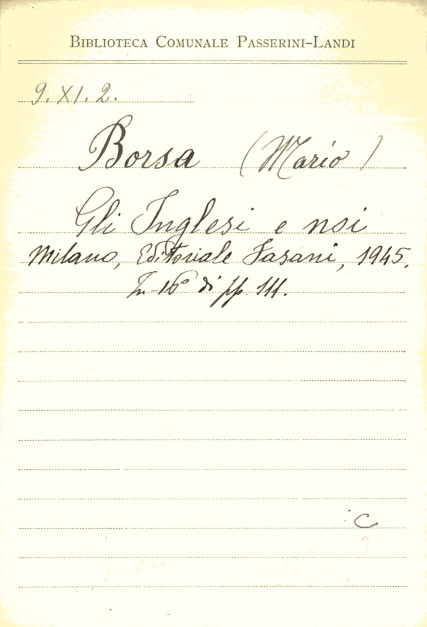 BIBLIOTECA COMUNALE PASSERINI-LANDI
9. XI. 2.
Borsa (Mario)
Gli Inglesi e noi
Milano, Editoriale Fasani, 1945.
In-16° di pp. 111.
C